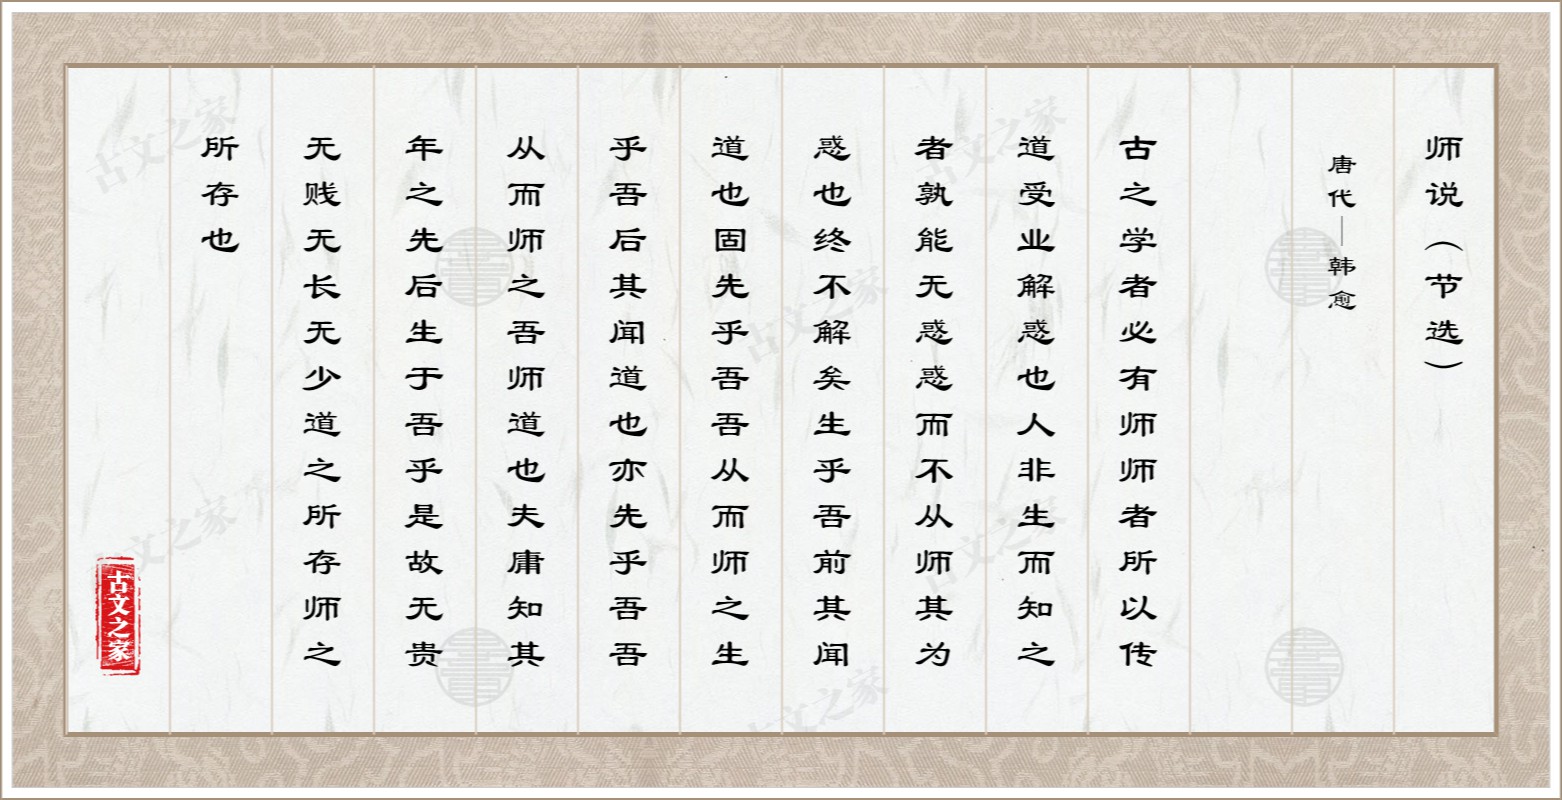 师说（节选）
唐代—韩愈
古之学者必有师师者所以传
道受业解惑也人非生而知之
者孰能无惑惑而不从师其为
惑也终不解矣生乎吾前其闻
道也固先乎吾吾从而师之生
乎吾后其闻道也亦先乎吾吾
从而师之吾师道也夫庸知其
年之先后生于吾乎是故无贵
无贱无长无少道之所存师之
所存也
古文之家
古文之家
古文之家
古文之家
古文之家
古文之家
古文之家